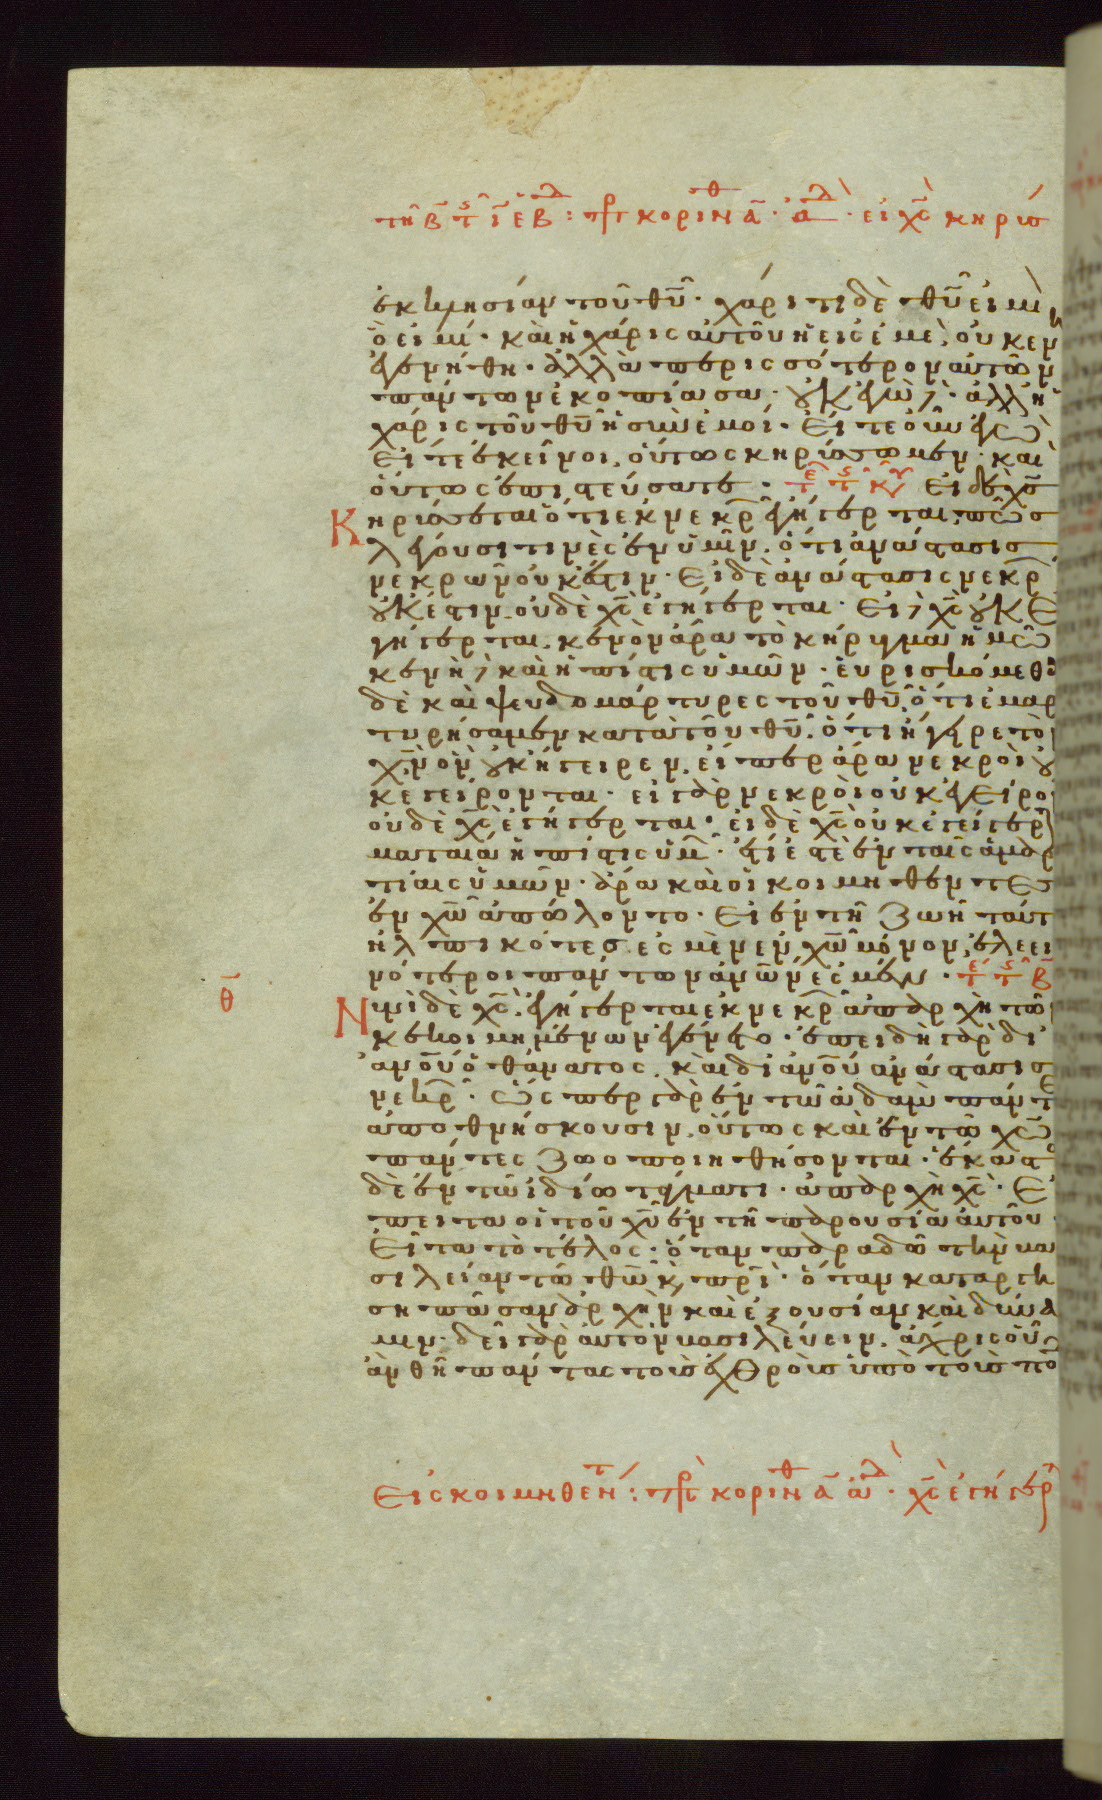 τῆ β̄ τ ς ῑ ἑβδ : πρ κοριν ᾱ · ἀδ · εἰ χ̅ς κηρύσ
ἐκκλησίαν τοῦ θ̅υ̅ · χάριτι δὲ θ̅υ̅ εἰμὶ
ὅ εἰμί · καὶ ἡ χάρις αὐτοῦ ἡ εἰς ἐμὲ, οὐ κεν
ἐγενήθη · ἀλλὰ περισσότερον αὐτῶν
πάντων ἐκοπίασα · οὐκ ἐγὼ δὲ · ἀλλ ἡ
χάρις τοῦ θ̅υ̅ ἡ σὺν ἐμοί · Εἴτε οὖν ἐγὼ
Εἴτε ἐκεῖνοι, οὕτως κηρύσσωμεν · καὶ
οὕτως ἐπιστεύσατε · τε τ κυ Εἰ δὲ χ̅ς
Κηρύσσεται ὅτι ἐκ νεκρ ἐγήγερται, πῶσ
λέγουσι τινὲς ἐν ὑμῖν, ὅτι ἀνάστασισ
νεκρῶν οὐκ ἔστιν · Εἰ δὲ ἀνάστασις νεκρ
οὐκ ἔστιν, οὐδὲ χ̅ς ἐγήγερται · Εἰ δὲ χ̅ς οὐκ Ε
γήγερται, κενὸν ἄρα τὸ κήρυγμα ἡμῶ
κενὴ δὲ καὶ ἡ πίστις ὑμῶν · εὑρισκόμεθα
δὲ καὶ ψευδομάρτυρες τοῦ θ̅υ̅, ὅτι ἐμαρ
τυρήσαμεν κατὰ τοῦ θ̅υ̅ · ὅτι ἤγειρε τὸν
χ̅ν ὃν οὐκ ἤγειρεν, εἴπερ ἄρα νεκροὶ οὐ
κ ἐγείρονται · εἰ γὰρ νεκροὶ οὐκ ἐγείρον
οὐδὲ χ̅ς ἐγήγερται · εἰ δὲ χ̅ς οὐκ ἐγείγερ
ματαία ἡ πίστις ὑμ · ἔτι ἐστὲ ἐν ταῖς ἁμαρ
τίαις ὑμῶν · ἄρα καὶ οἱ κοιμηθέντεσ
ἐν χ̅ω̅ ἀπώλοντο · Εἰ ἐν τῆ ζωῆ ταύτ
ἠλπικότες ἐσμὲν ἐν χ̅ω̅ μόνον, ἐλεει
νότεροι πάντων ἀν̅ω̅ν ἐσμέν · τε τ β̄
θ̄
Νυνὶ δὲ χ̅ς ἐγήγερται ἐκ νεκρ ἀπαρχὴ τῶν
κεκοιμημένων ἐγένετο · ἐπειδὴ γὰρ δι
ἀν̅ο̅υ̅ ὁ θάνατος, καὶ δι ἀν̅ο̅υ̅ ἀνάστασισ
νεκρ · ὥσπερ γὰρ ἐν τῶ ἀδαμ πάντε
ἀποθνήσκουσιν, οὕτως καὶ ἐν τῶ χ̅ω̅
πάντες ζωοποιηθήσονται · ἕκαστ
δὲ ἐν τῶ ἰδίω τάγματι · ἀπαρχὴ χ̅ς · Ε
πειτα οἱ τοῦ χ̅υ̅ ἐν τῆ παρουσία αὐτοῦ ·
Εἶτα τὸ τέλος · ὅταν παραδῶ τὴν βα
σιλείαν τῶ θ̅ω̅ κ, πρ̅ι̅ · ὅταν καταργή
ση πᾶσαν ἀρχὴν καὶ ἐξουσίαν καὶ δύνα
μιν · δεῖ γὰρ αὐτὸν βασιλεύειν, ἄχρις οὗ
ἂν θῆ πάντας τοὺς ἐχθροὺς ὑπὸ τοὺς πό
Εἰς κοιμηθέντ : πρ κορινθ ᾱ ἀδ · χ̅ς ἐγήγερ